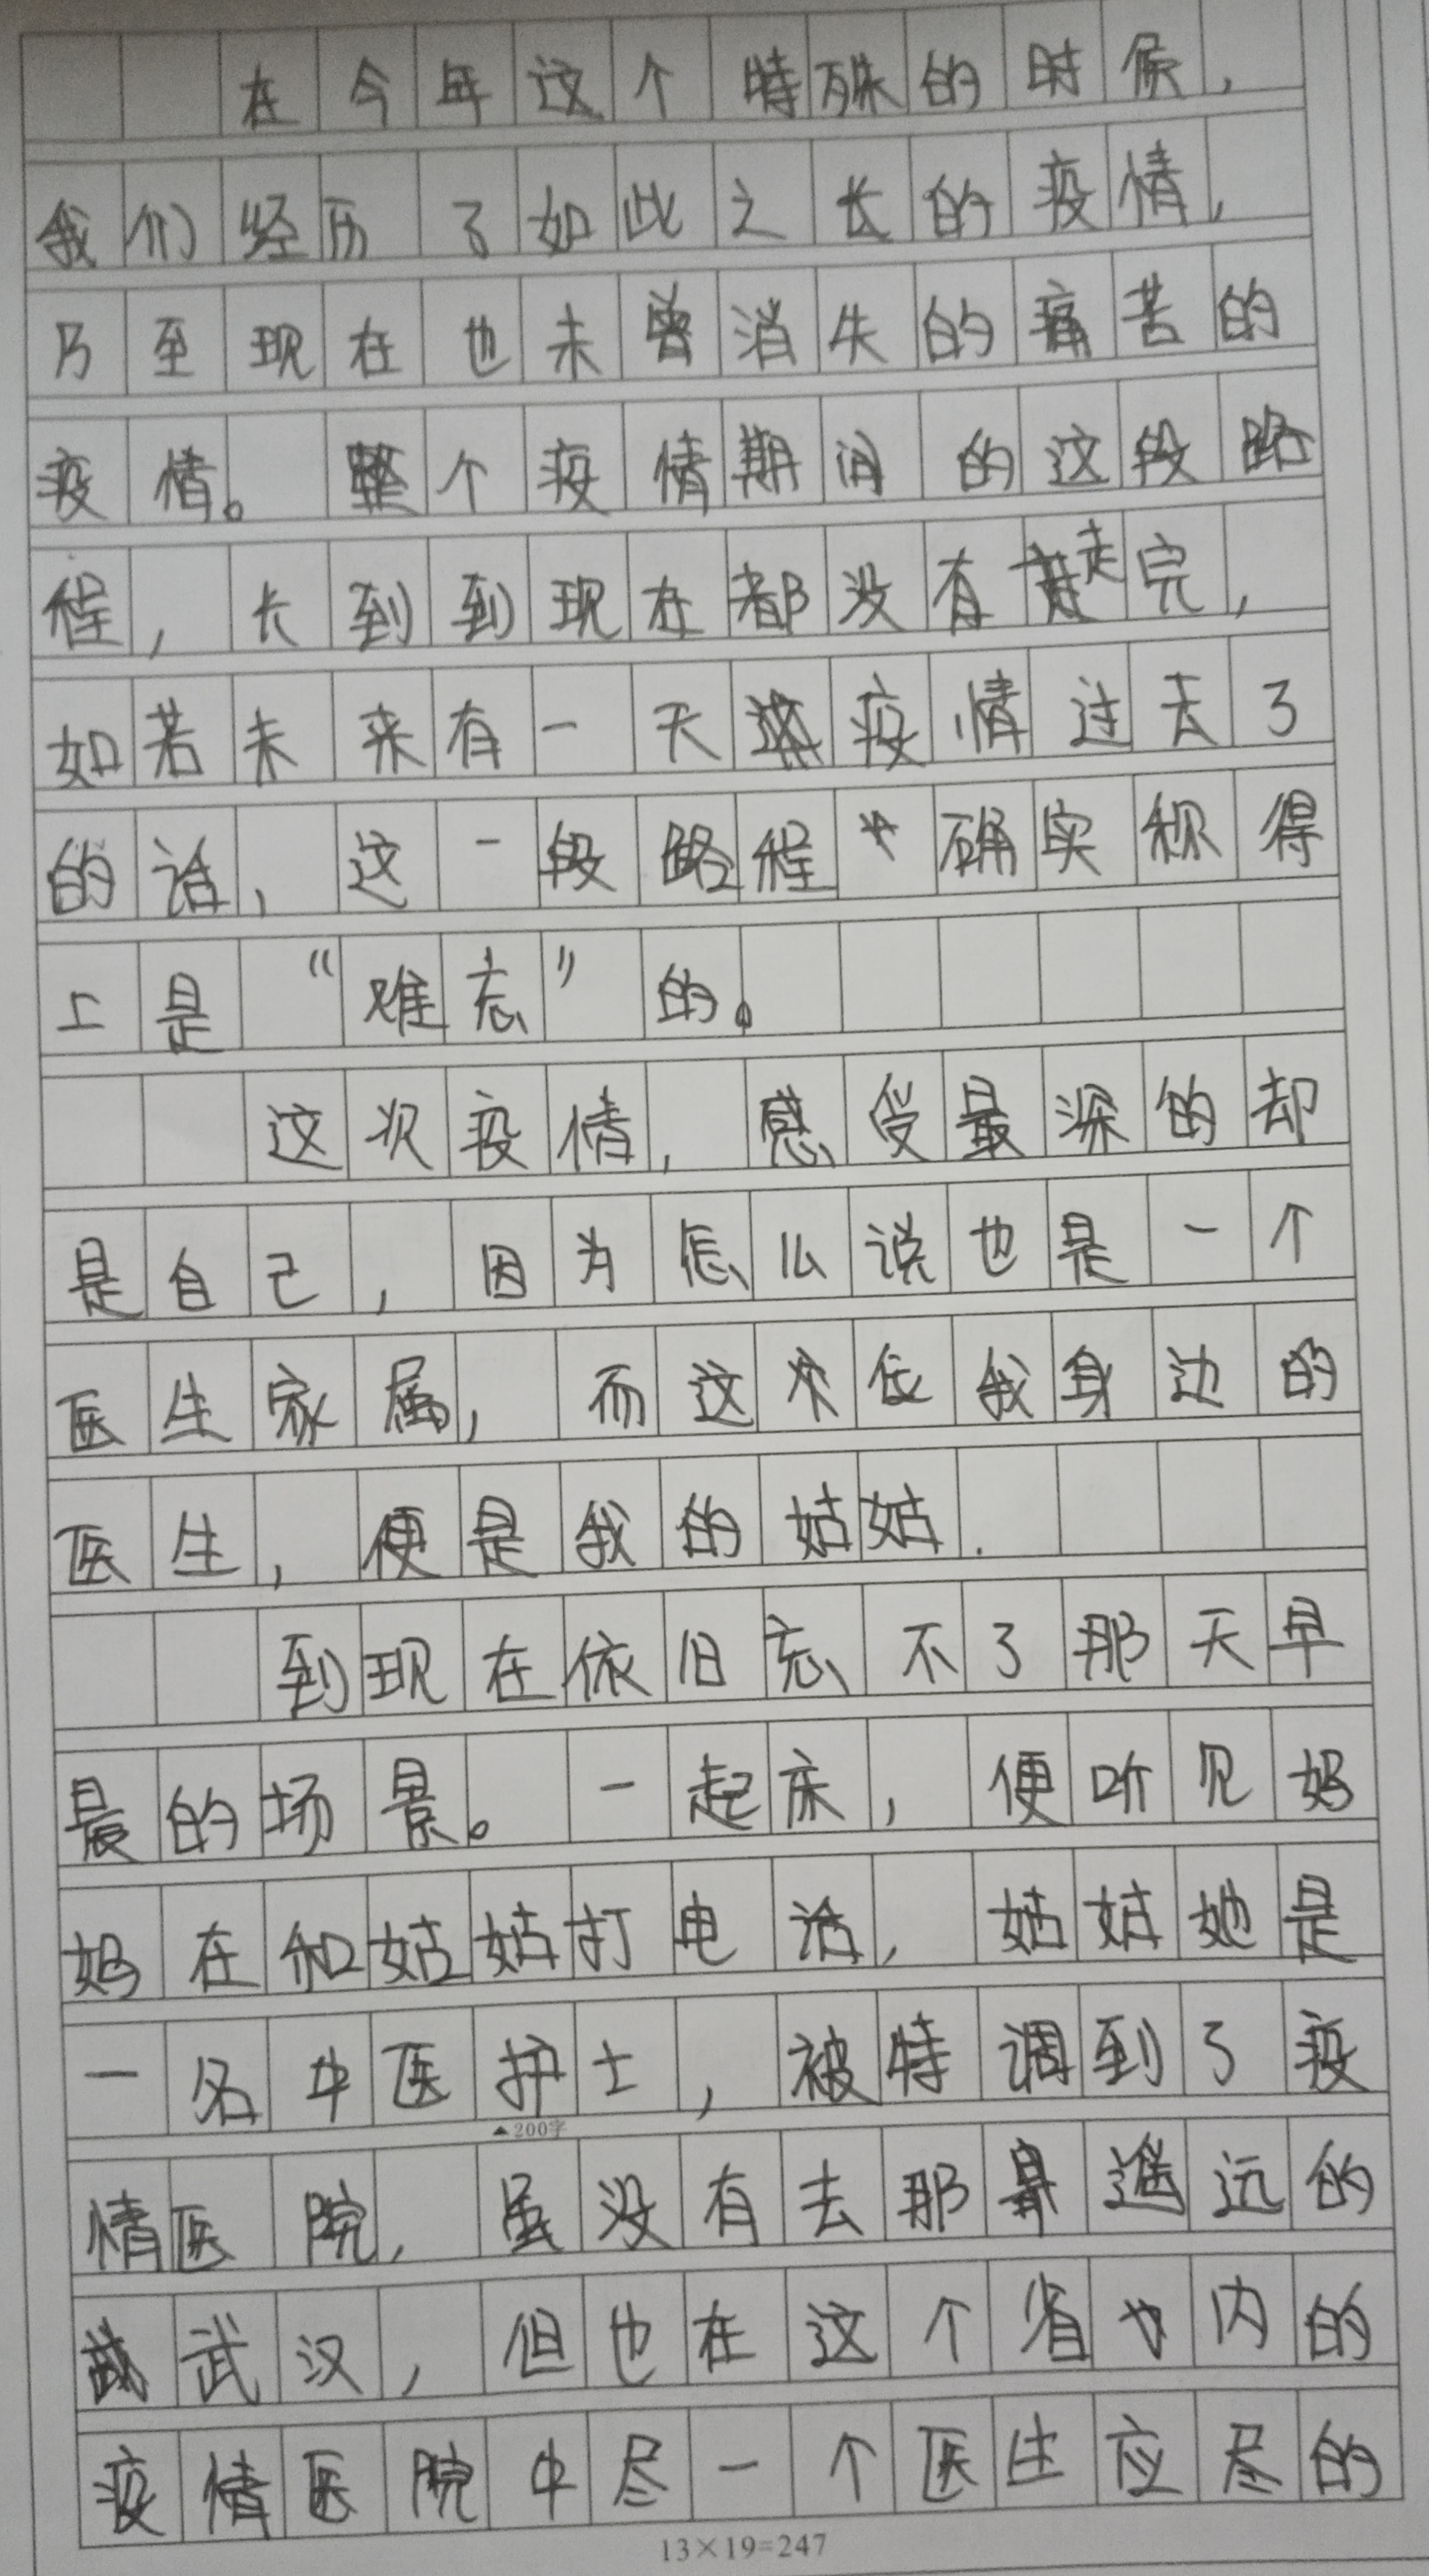 在今年这个特殊的时候，
我们经历了如此之长的疫情，
乃至现在也未曾消失的痛苦的
疫情。整个疫情期间的这段路
程，长到到现在都没有走完，
如若未来有一天疫情过去了
的话，这一段路程确实称得
上是“难忘”的。
这次疫情，感受最深的却
是自己，因为怎么说也是一个
医生家属，而这个在我身边的
医生，便是我的姑姑.
到现在依旧忘不了那天早
晨的场景。一起床，便听见妈
妈在和姑姑打电话，姑姑她是
一名中医护士，被特调到了疫
▲200字
情医院，虽没有去那遥远的
武汉，但也在这个省内的
疫情医院中尽一个医生应尽的
13×19=247